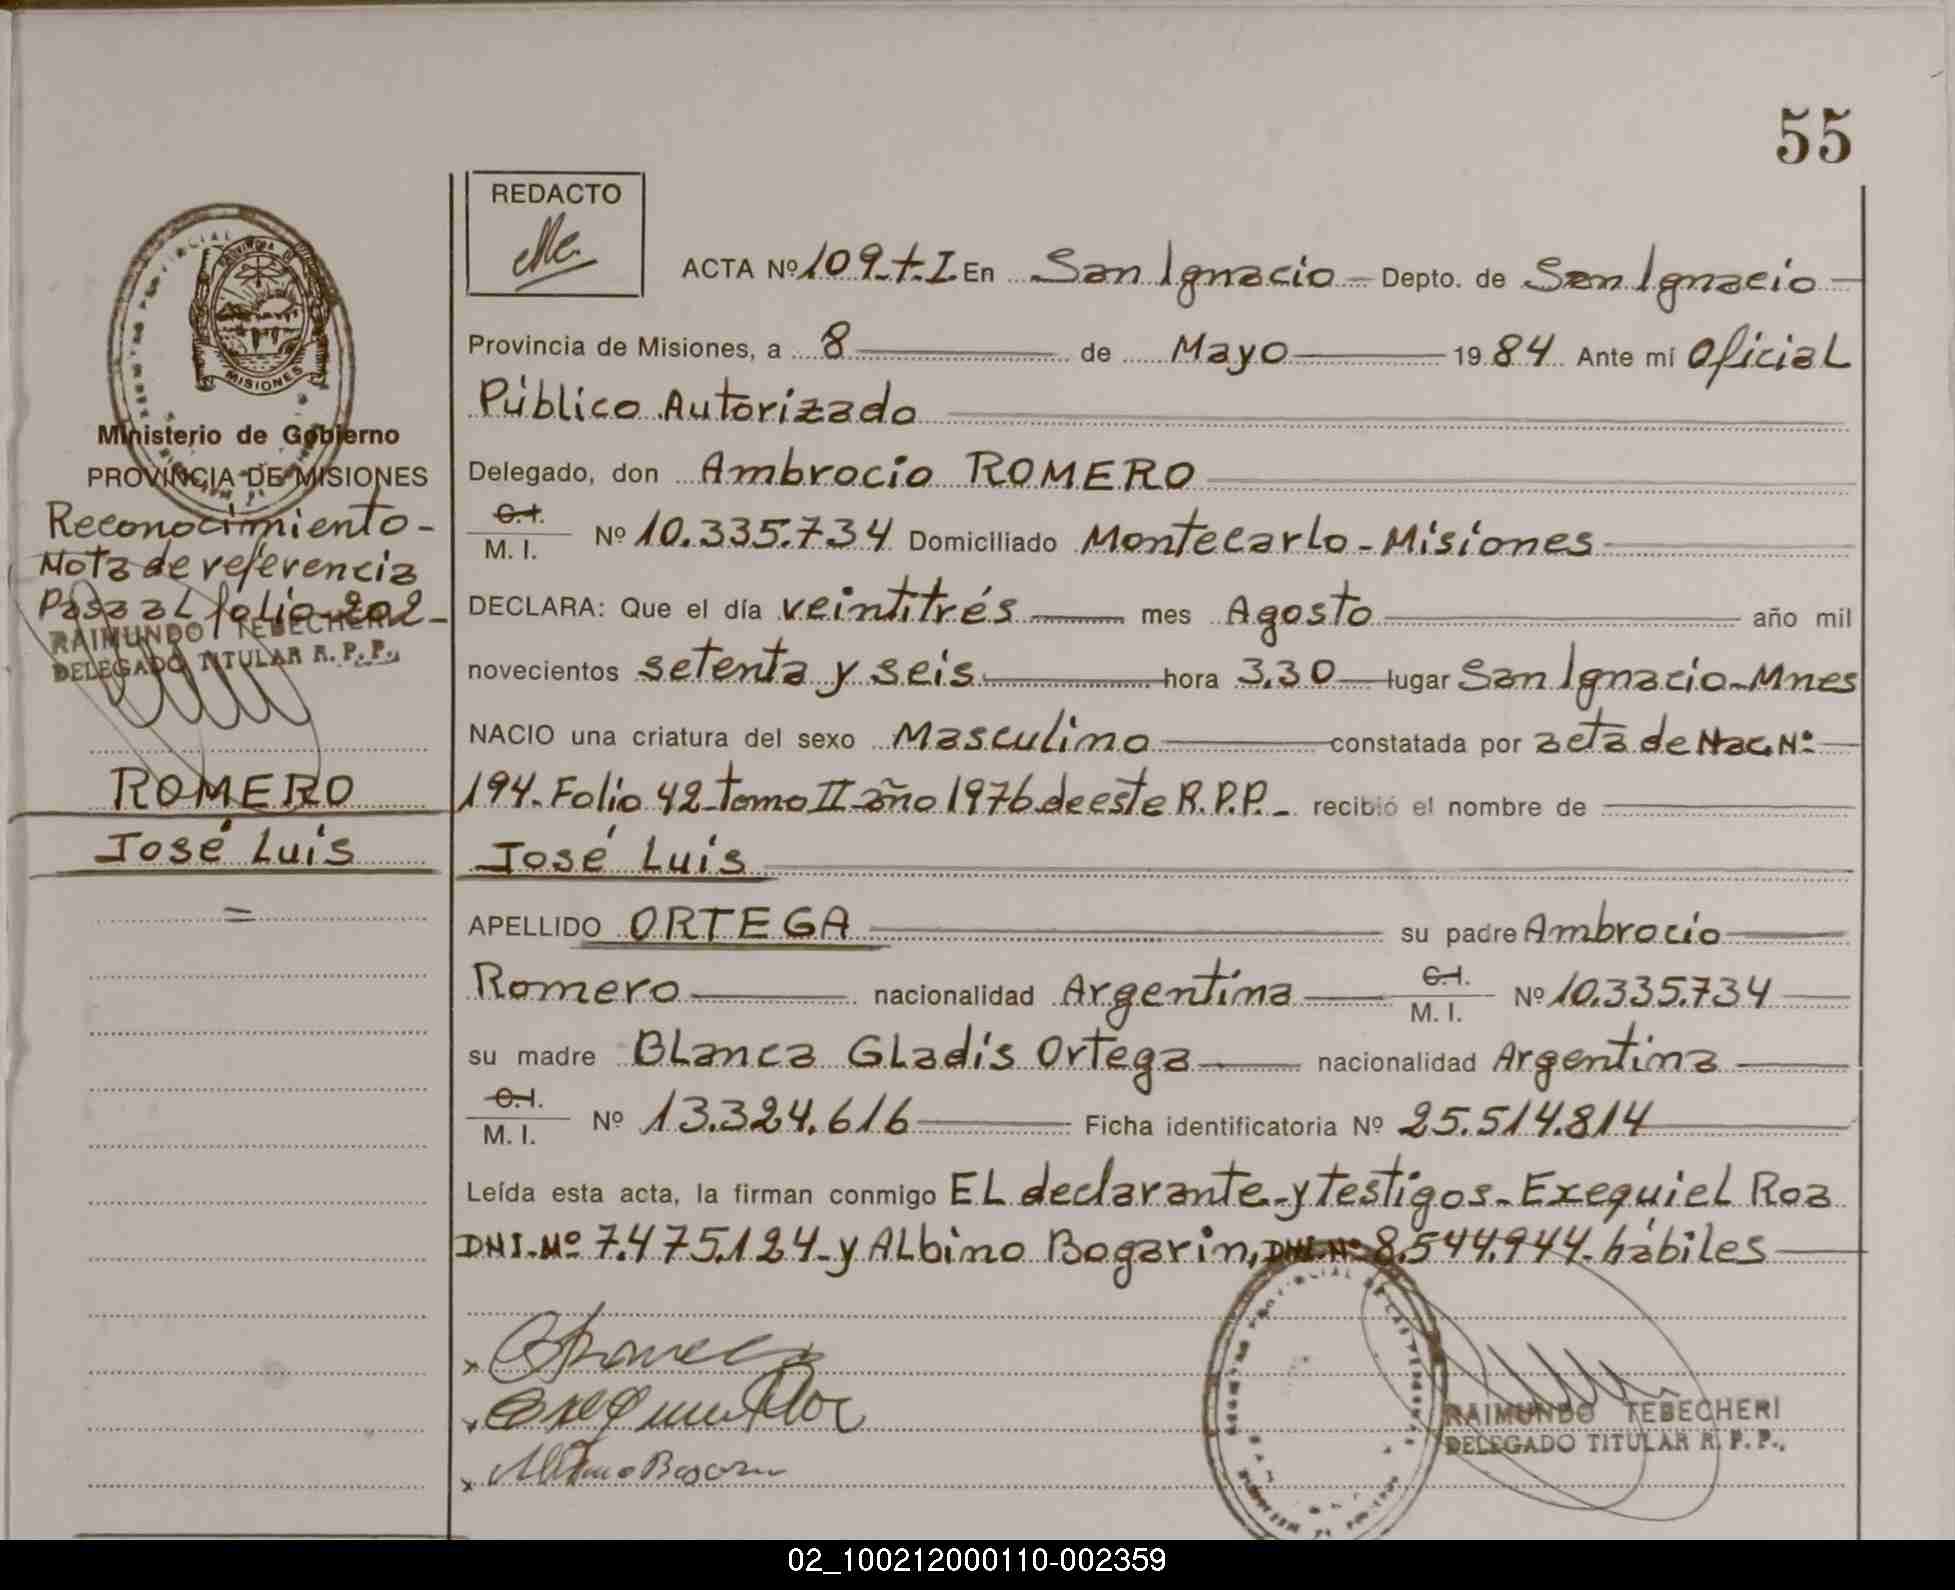 55
REDACTO
ACTA Nº 109-t-I En San Ignacio Depto. de San Ignacio
Provincia de Misiones, a 8 de Mayo 1984 Ante mí Oficial
Público Autorizado
Delegado, don Ambrocio ROMERO
C.I.
M. I. Nº 10.335.734 Domiciliado Montecarlo - Misiones
DECLARA: Que el día veintitrés mes Agosto año mil
novecientos setenta y seis hora 3,30 lugar San Ignacio-Mnes
NACIO una criatura del sexo Masculino constatada por acta de Nac. Nº
194-Folio 42-tomo II-año 1976 de este R.P.P.- recibió el nombre de
José Luis
APELLIDO ORTEGA su padre Ambrocio
Romero nacionalidad Argentina C.I.
M. I. Nº 10.335.734
su madre Blanca Gladis Ortega nacionalidad Argentina
C.I.
M. I. Nº 13.324.616 Ficha identificatoria Nº 25.514.814
Leída esta acta, la firman conmigo El declarante-y testigos-Exequiel Roa
DNI-Nº 7.475.124-y Albino Bogarin, DNI-Nº 8.544.944-hábiles
RAIMUNDO TEBECHERI
DELEGADO TITULAR R. P. P.
PROVINCIA DE
MISIONES
Ministerio de Gobierno
PROVINCIA DE MISIONES
Reconocimiento-
Nota de referencia
Pasa al folio-202-
RAIMUNDO TEBECHERI
DELEGADO TITULAR R. P. P.
ROMERO
José Luis
=
02_100212000110-002359